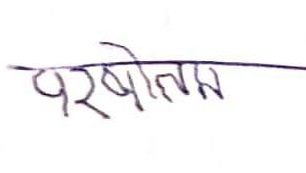 परषोतम